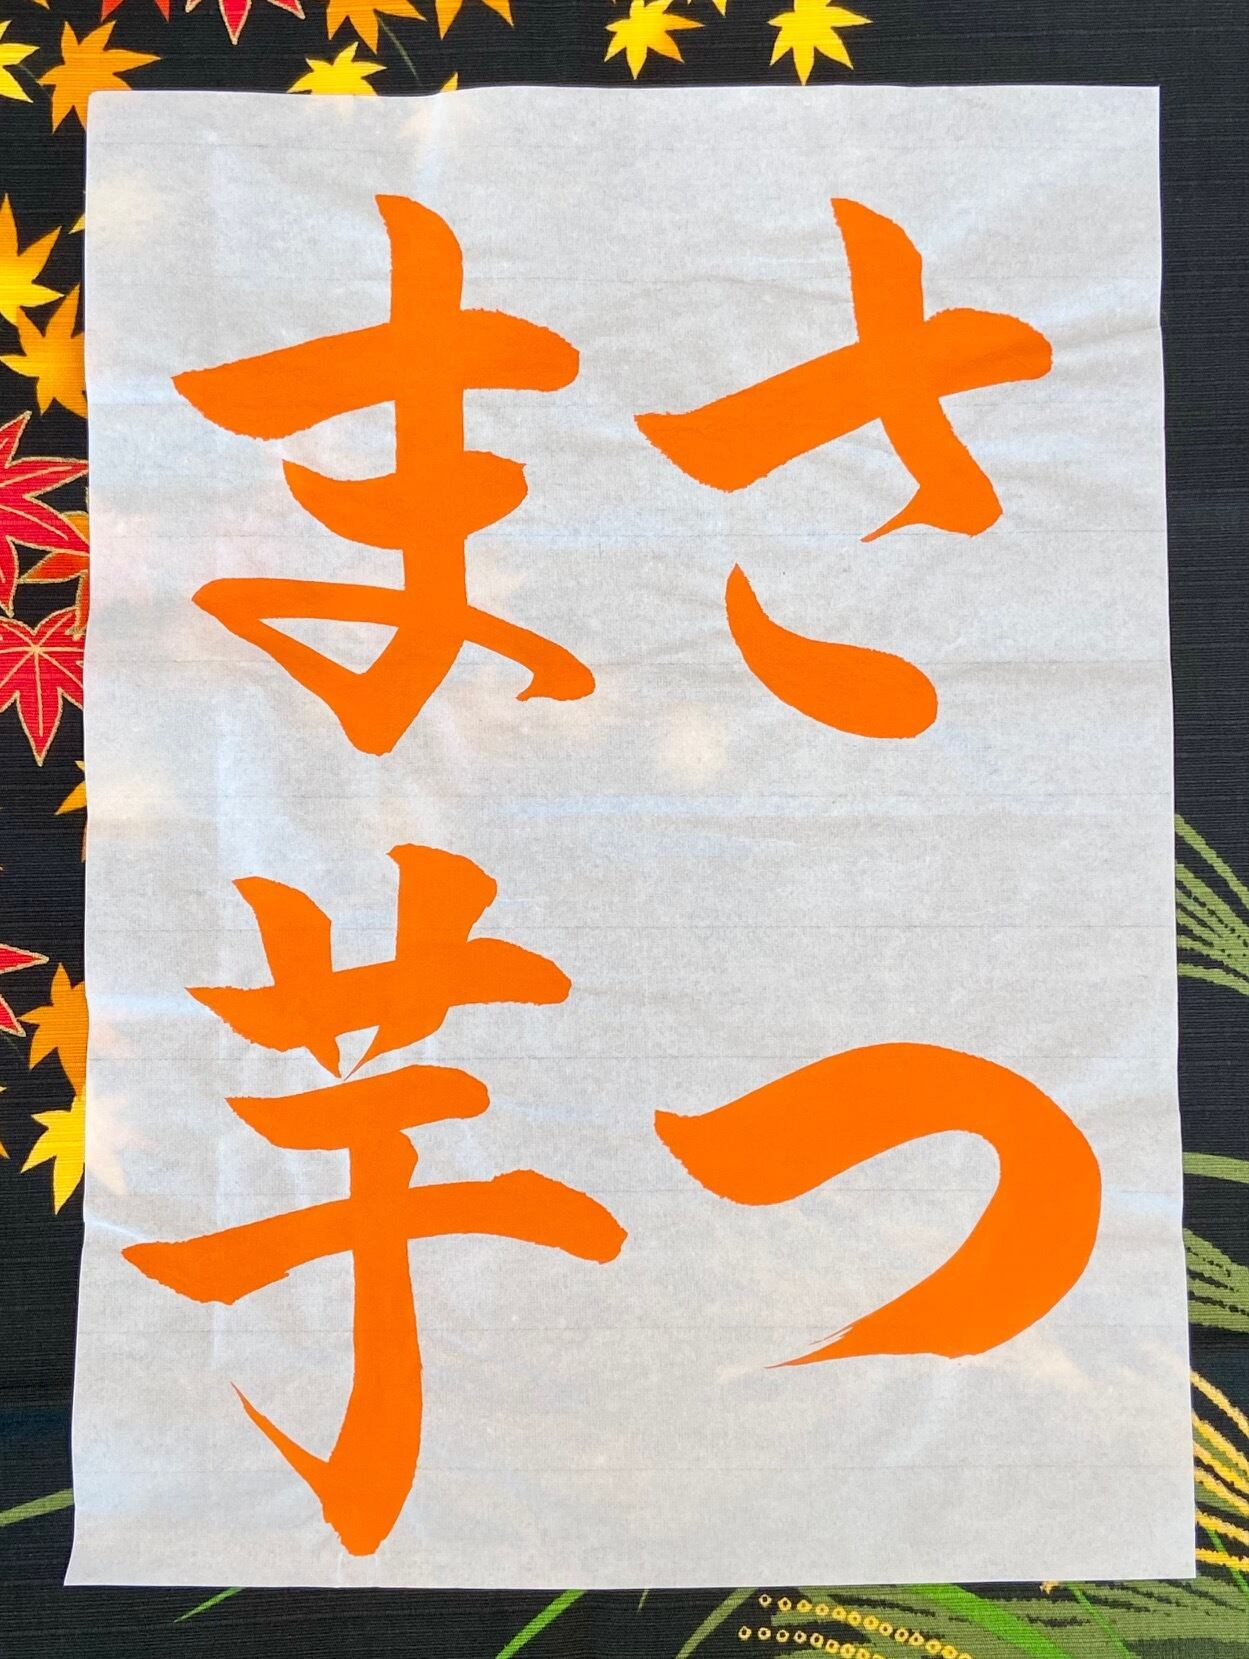 さつ
ま芋